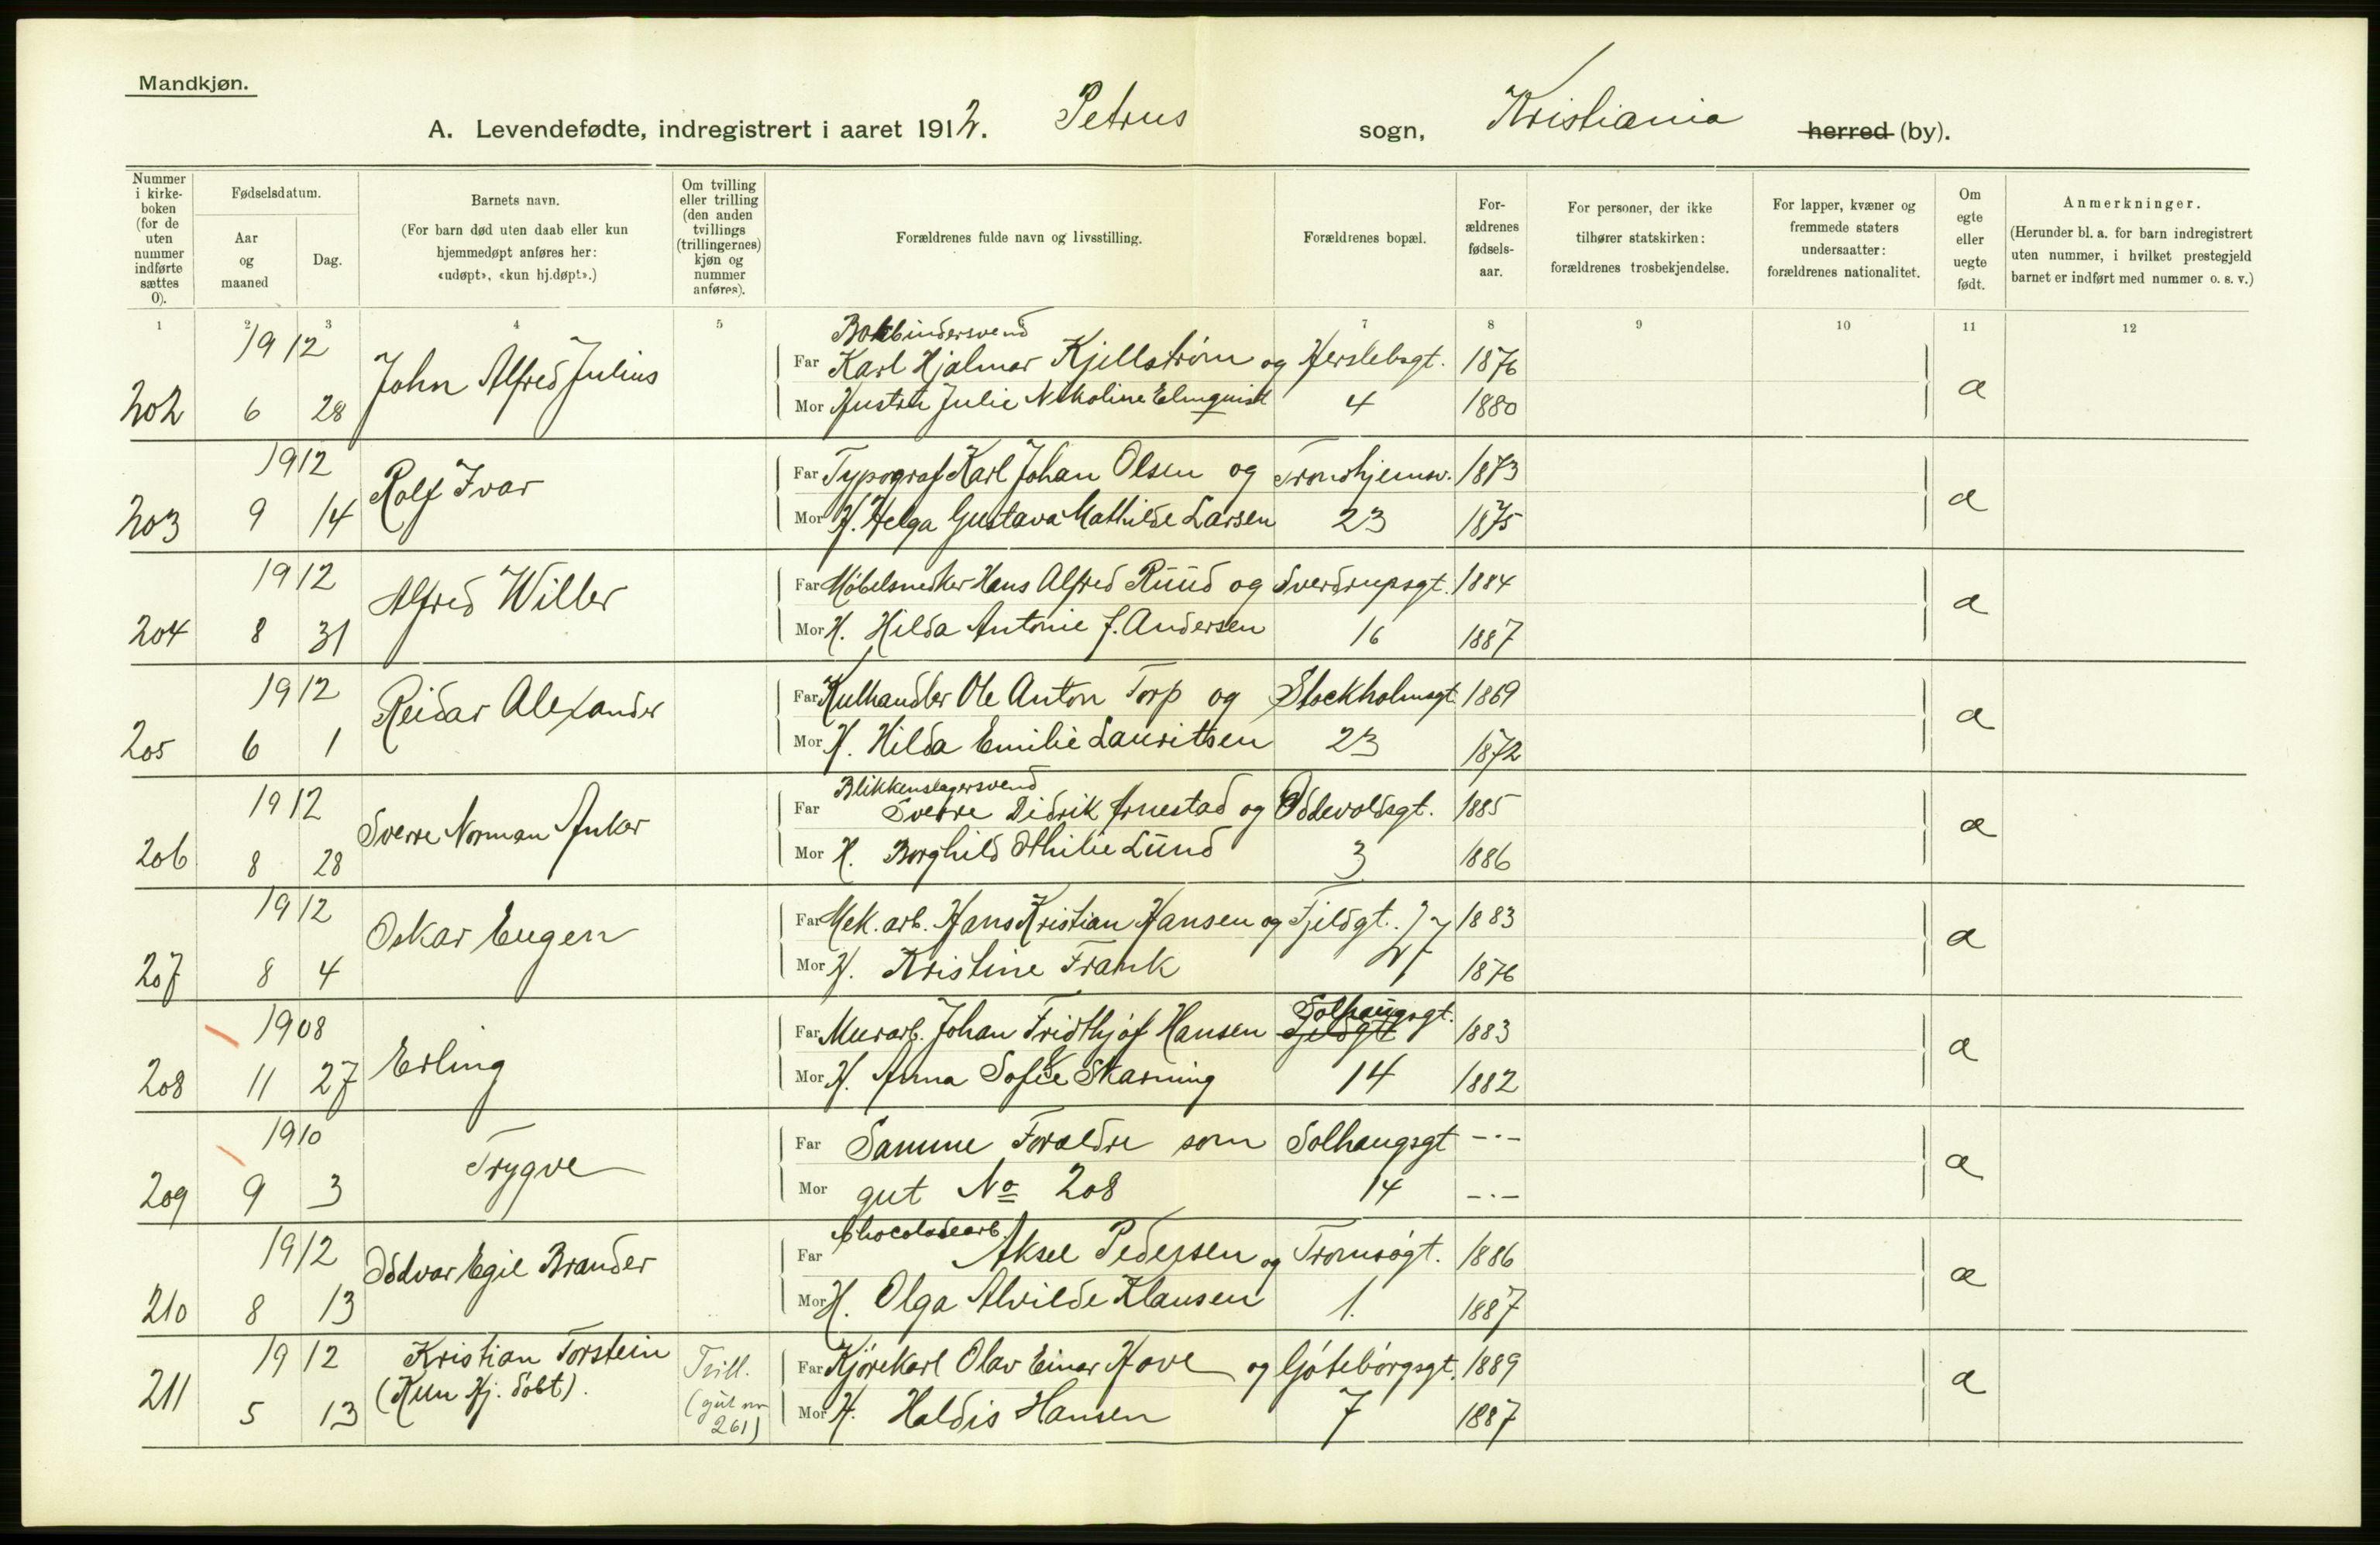 Mandkjøn.
A. Levendefødte, indregistrert i aaret 1912. Petrus sogn, Kristiania herred (by).
Nummer i kirke-boken (for de uten nummer indførte sættes 0).
Fødselsdatum.
Aar og maaned
Dag.
Barnets navn.
(For barn død uten daab eller kun hjemmedøpt anføres her: «udøpt», «kun hj.døpt».)
Om tvilling eller trilling (den anden tvillings (trillingernes) kjøn og nummer anføres).
Forældrenes fulde navn og livsstilling.
Forældrenes bopæl.
For-ældrenes fødsels-aar.
For personer, der ikke tilhører statskirken: forældrenes trosbekjendelse.
For lapper, kvæner og fremmede staters undersaatter: forældrenes nationalitet.
Om egte eller uegte født.
Anmerkninger.
(Herunder bl. a. for barn indregistrert uten nummer, i hvilket prestegjeld barnet er indført med nummer o. s. v.)
1 2 3 4 5 7 8 9 10 11 12
1912 Bokbindersvend
John Alfred Julius Far Karl Hjalmar Kjellstrøm og Herslebsgt. 1876
202 6 28 Mor Hustru Julie Nikoline Elmquist 4 1880 a
1912 Rolf Ivar Far Typograf Karl Johan Olsen og Trondhjemsv. 1873
203 9 14 Mor H. Helga Gustava Mathilde Larsen 23 1875 a
1912 Alfred Willer Far Möbelsnedker Hans Alfred Ruud og Sverdrupsgt. 1884
204 8 31 Mor H. Hilda Antonie J. Andersen 16 1887 a
1912 Reidar Alexander Far Kulhandler Ole Anton Torp og Stockholmsgt. 1869
205 6 1 Mor H. Hilda Emilie Lauritsen 23 1872 a
1912 Blikkenslagersvend
Sverre Norman Anker Far Sverre Didrik Arnestad og Oddevoldsgt. 1885
206 8 28 Mor H. Borghild Othilie Lund 3 1886 a
1912 Oskar Eugen Far Mek. arb. Hans Kristian Hansen og Fjeldgt. 1883
207 8 4 Mor H. Kristine Frank 1876 a
1908 Solhaugsgt.
Erling Far Murarb. Johan Fridthjóf Hansen Fjeldgt 1883
208 11 27 Mor H. Anna Sofie Skarning 14 1882 a
1910 Trygve Far Samme Foraldre som Solhaugsgt -·-
209 9 3 Mor gut No 208 14 -·- a
1912 Chocoladearb.
Oddvar Egil Brander Far Aksel Pedersen og Tromsögt. 1886
210 8 13 Mor H. Olga Alvilde Klausen 1. 1887 a
1912 Kristian Torstein Tvill. Far Kjörekarl Olav Einar Hove og Götebórgsgt. 1889
211 5 13 (Kun Hj. döbt). (gut nr 261) Mor H. Haldis Hansen 7 1887 a